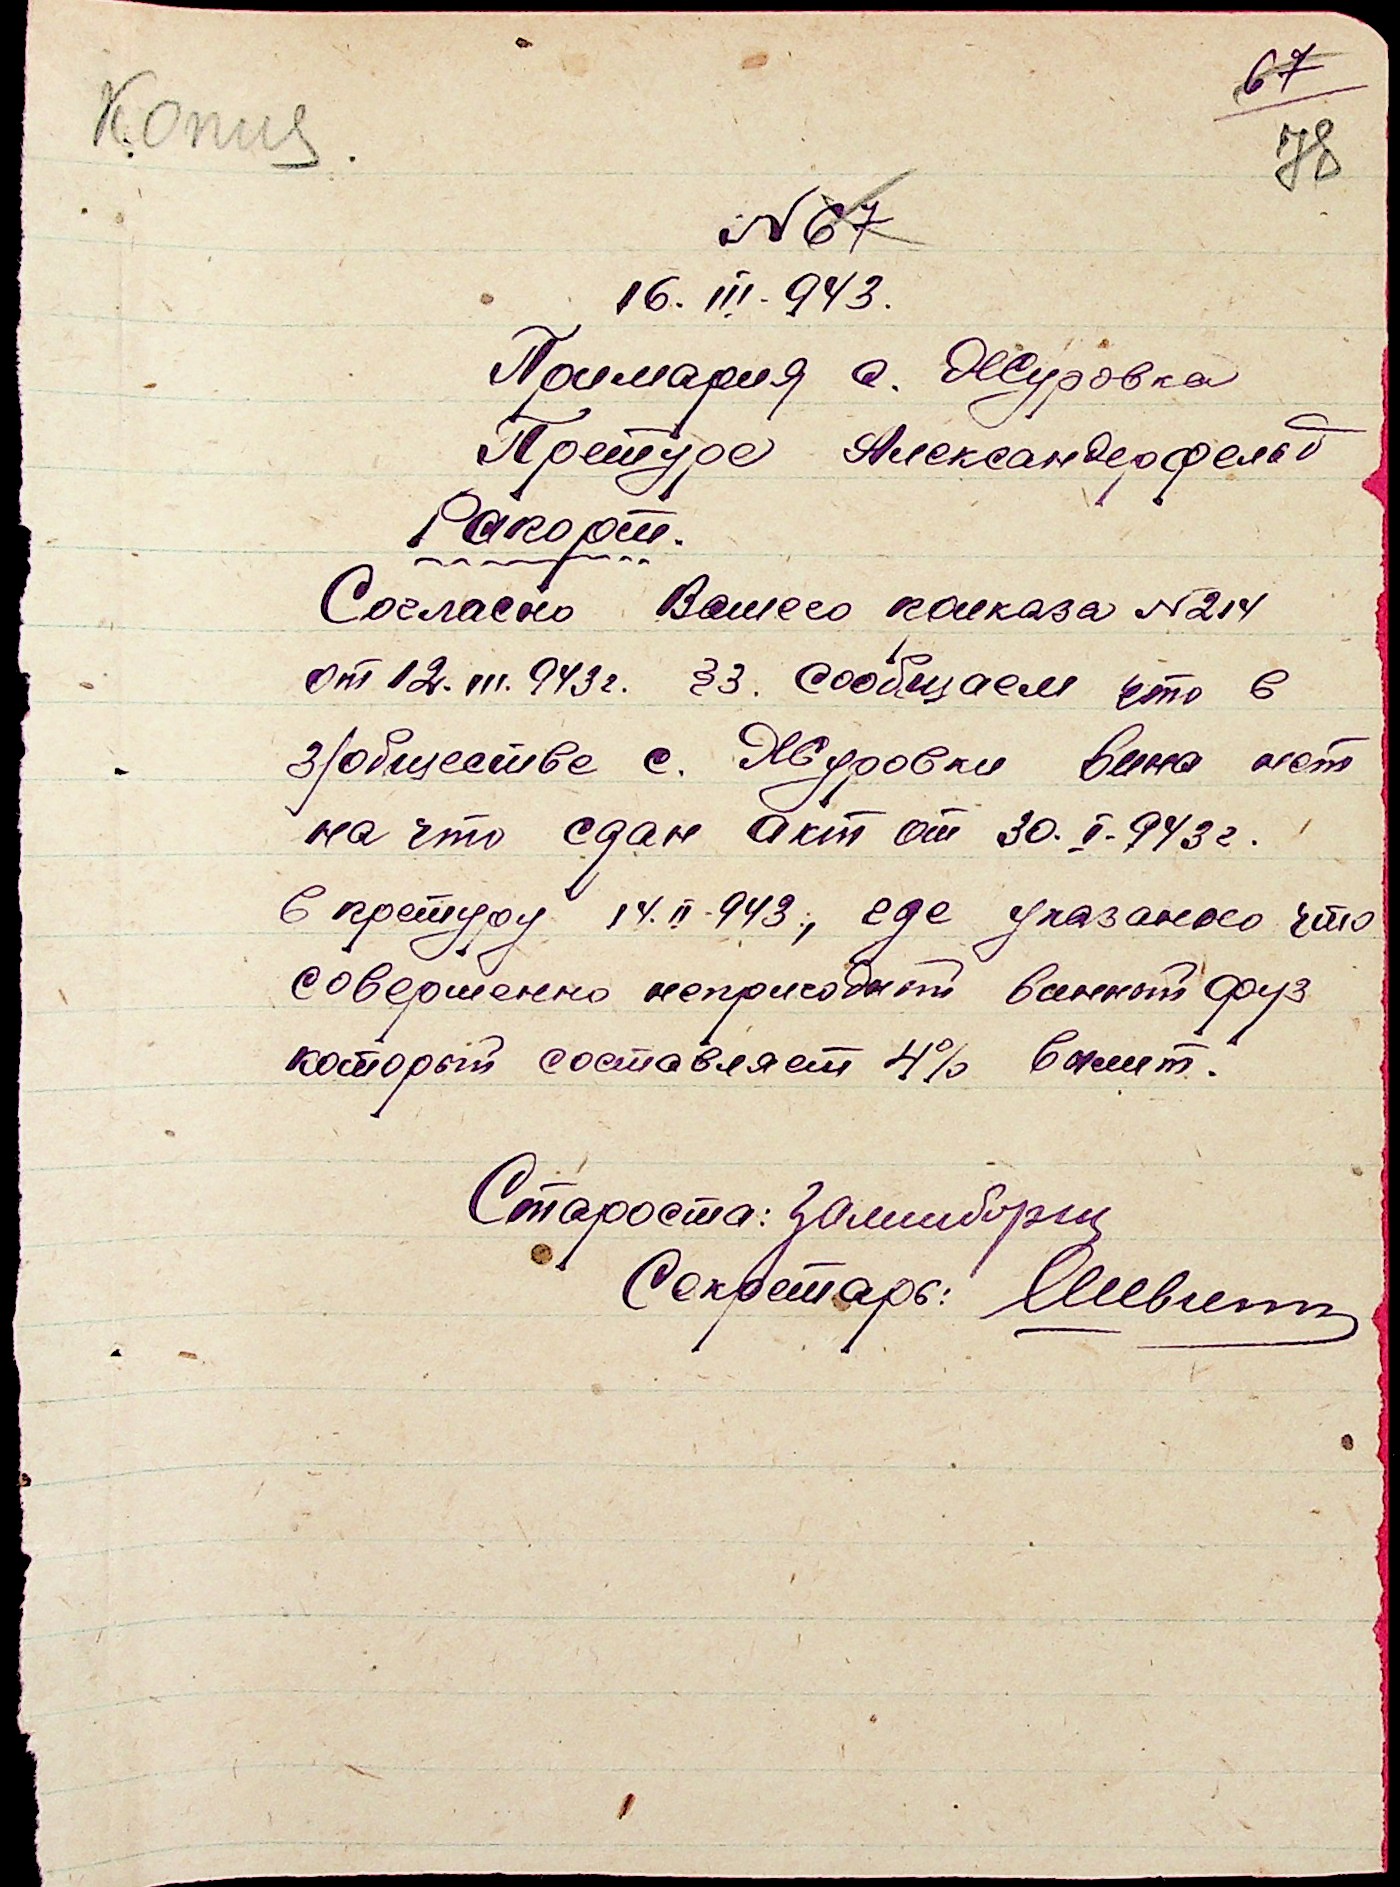 Копия.
67
78
№ 67
16. III - 943.
Примария с. Журовка
Претуре Александерфельд
Рапорт.
Согласно Вашего приказа № 214
от 12. III. 943 г. §3. сообщаем что в
з/обществе с. Журовки вина нет
на что сдан акт от 30. I - 943 г.
в претуру 14. II - 943., где указанно что
совершенно непригодный винный фуз
который составляет 4%
Староста:
Секретарь: